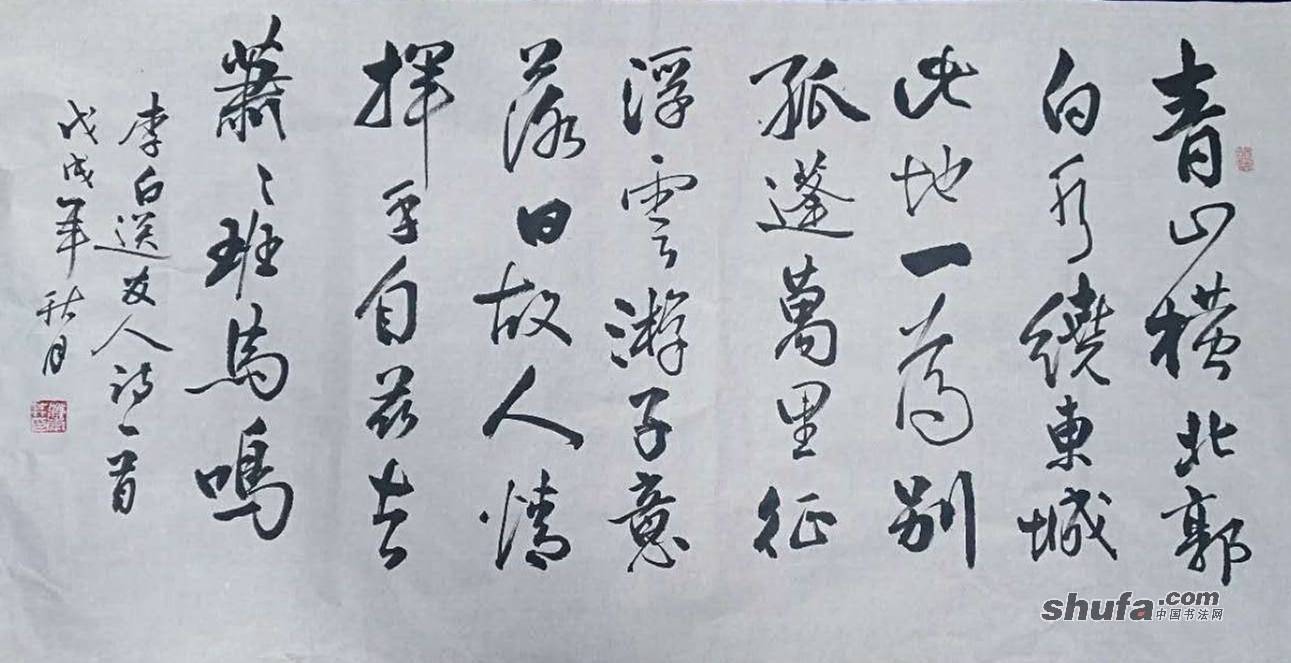 青山橫北郭
白水繞東城
此地一為別
孤蓬萬里征
浮雲游子意
落日故人情
揮手自茲去
蕭〻班馬鳴
李白送友人诗一首
戊戌年秋月
shufa.com
中国书法网